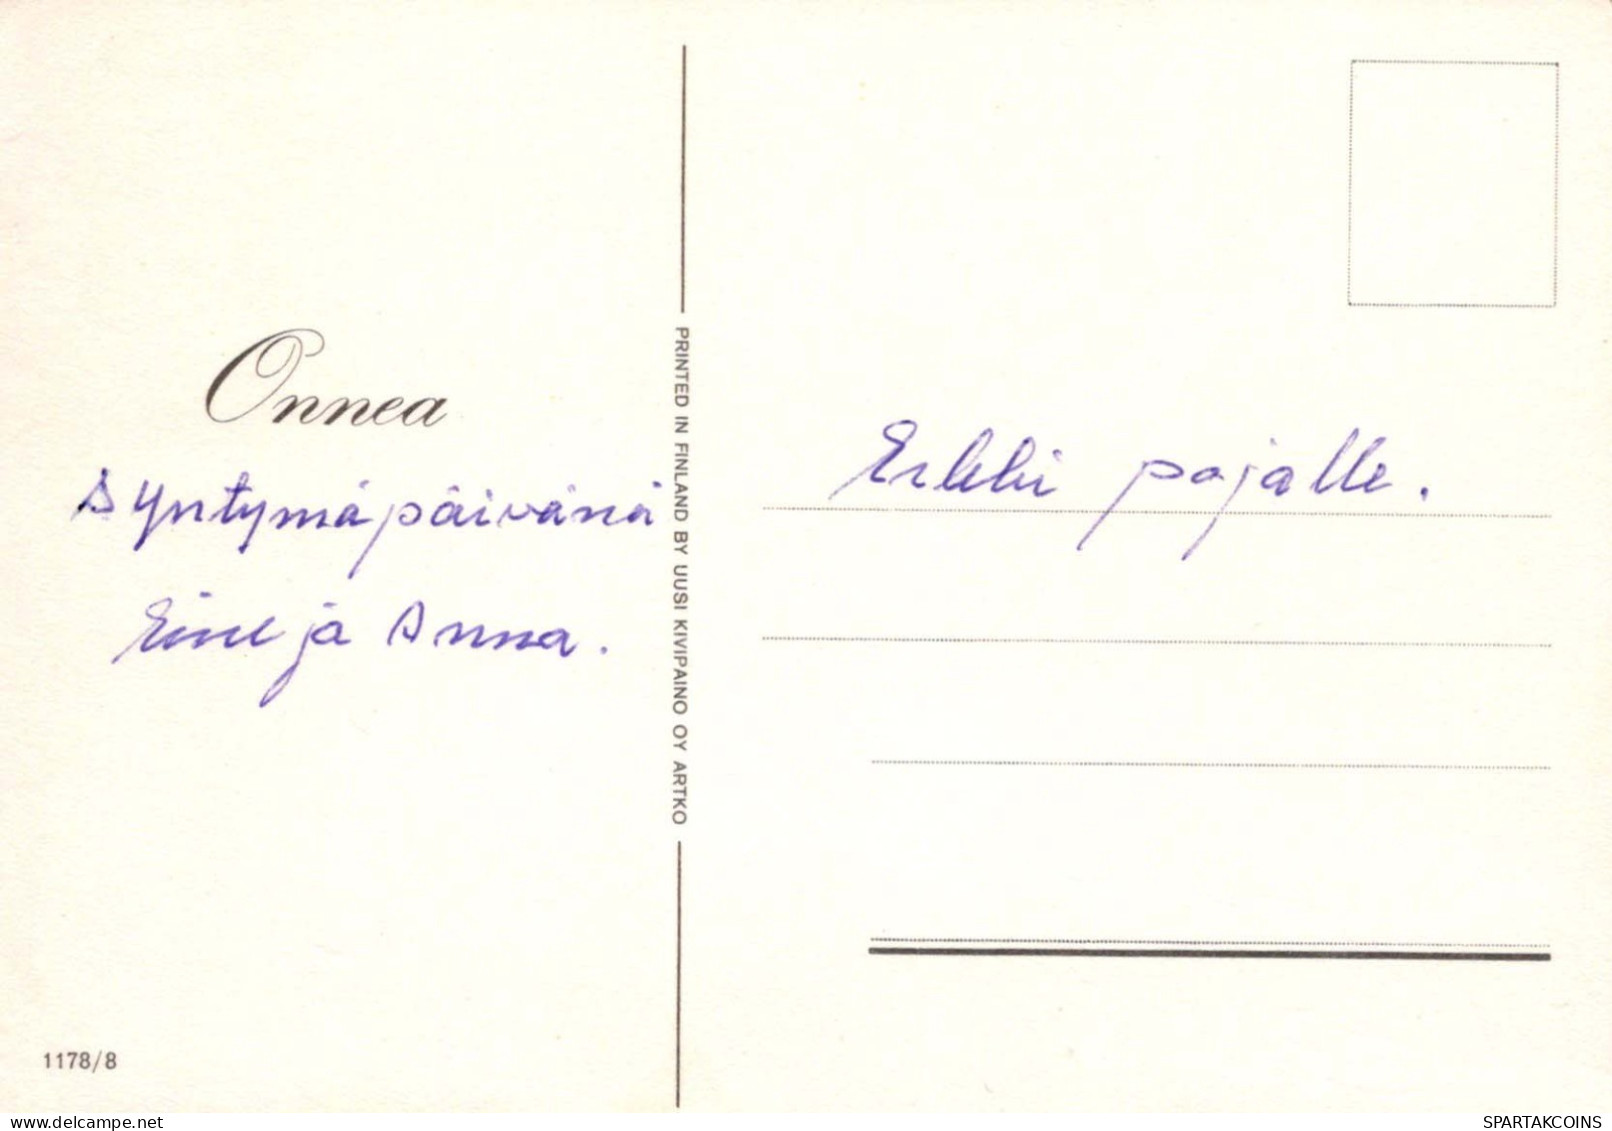 Onnea
syntymäpäivänä
Eine ja Anna.
PRINTED IN FINLAND BY UUSI KIVIPAINO OY ARTKO
Erkki pojalle.
1178/8
SPARTAKCOINS